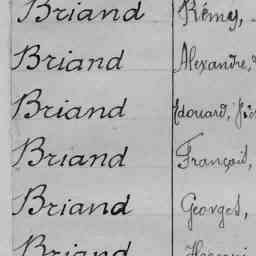 Briand Rémy,
Briand Alexandre,
Briand Edouard,
Briand François,
Briand Georges,
Briand